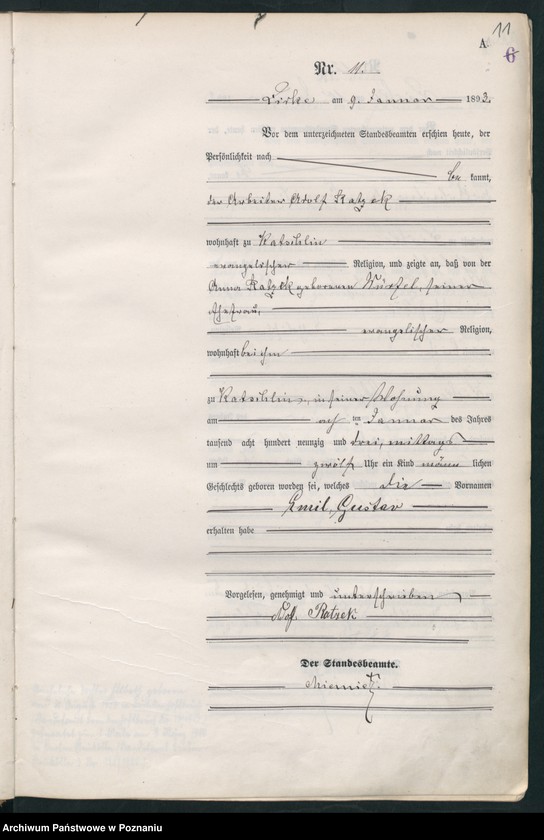 11
A
6
Nr. 11.
Zirke am 9. Januar 1893.
Vor dem unterzeichneten Standesbeamten erschien heute, der
Persönlichkeit nach
be kannt,
der Arbeiter Adolf Ratzek
wohnhaft zu Kaischlin
evangelischer Religion, und zeigte an, daß von der
Anna Ratzek geborenen Würfel, seiner
Ehefrau,
evangelischer Religion,
wohnhaft bei ihm
zu Kaischlin, in seiner Wohnung
am ach ten Januar des Jahres
tausend acht hundert neunzig und drei, mittags
um zwölf Uhr ein Kind männ lichen
Geschlechts geboren worden sei, welches die Vornamen
Emil, Gustav
erhalten habe
Vorgelesen, genehmigt und unterschrieben
Adolf Ratzek
Der Standesbeamte.
Archiwum Państwowe w Poznaniu